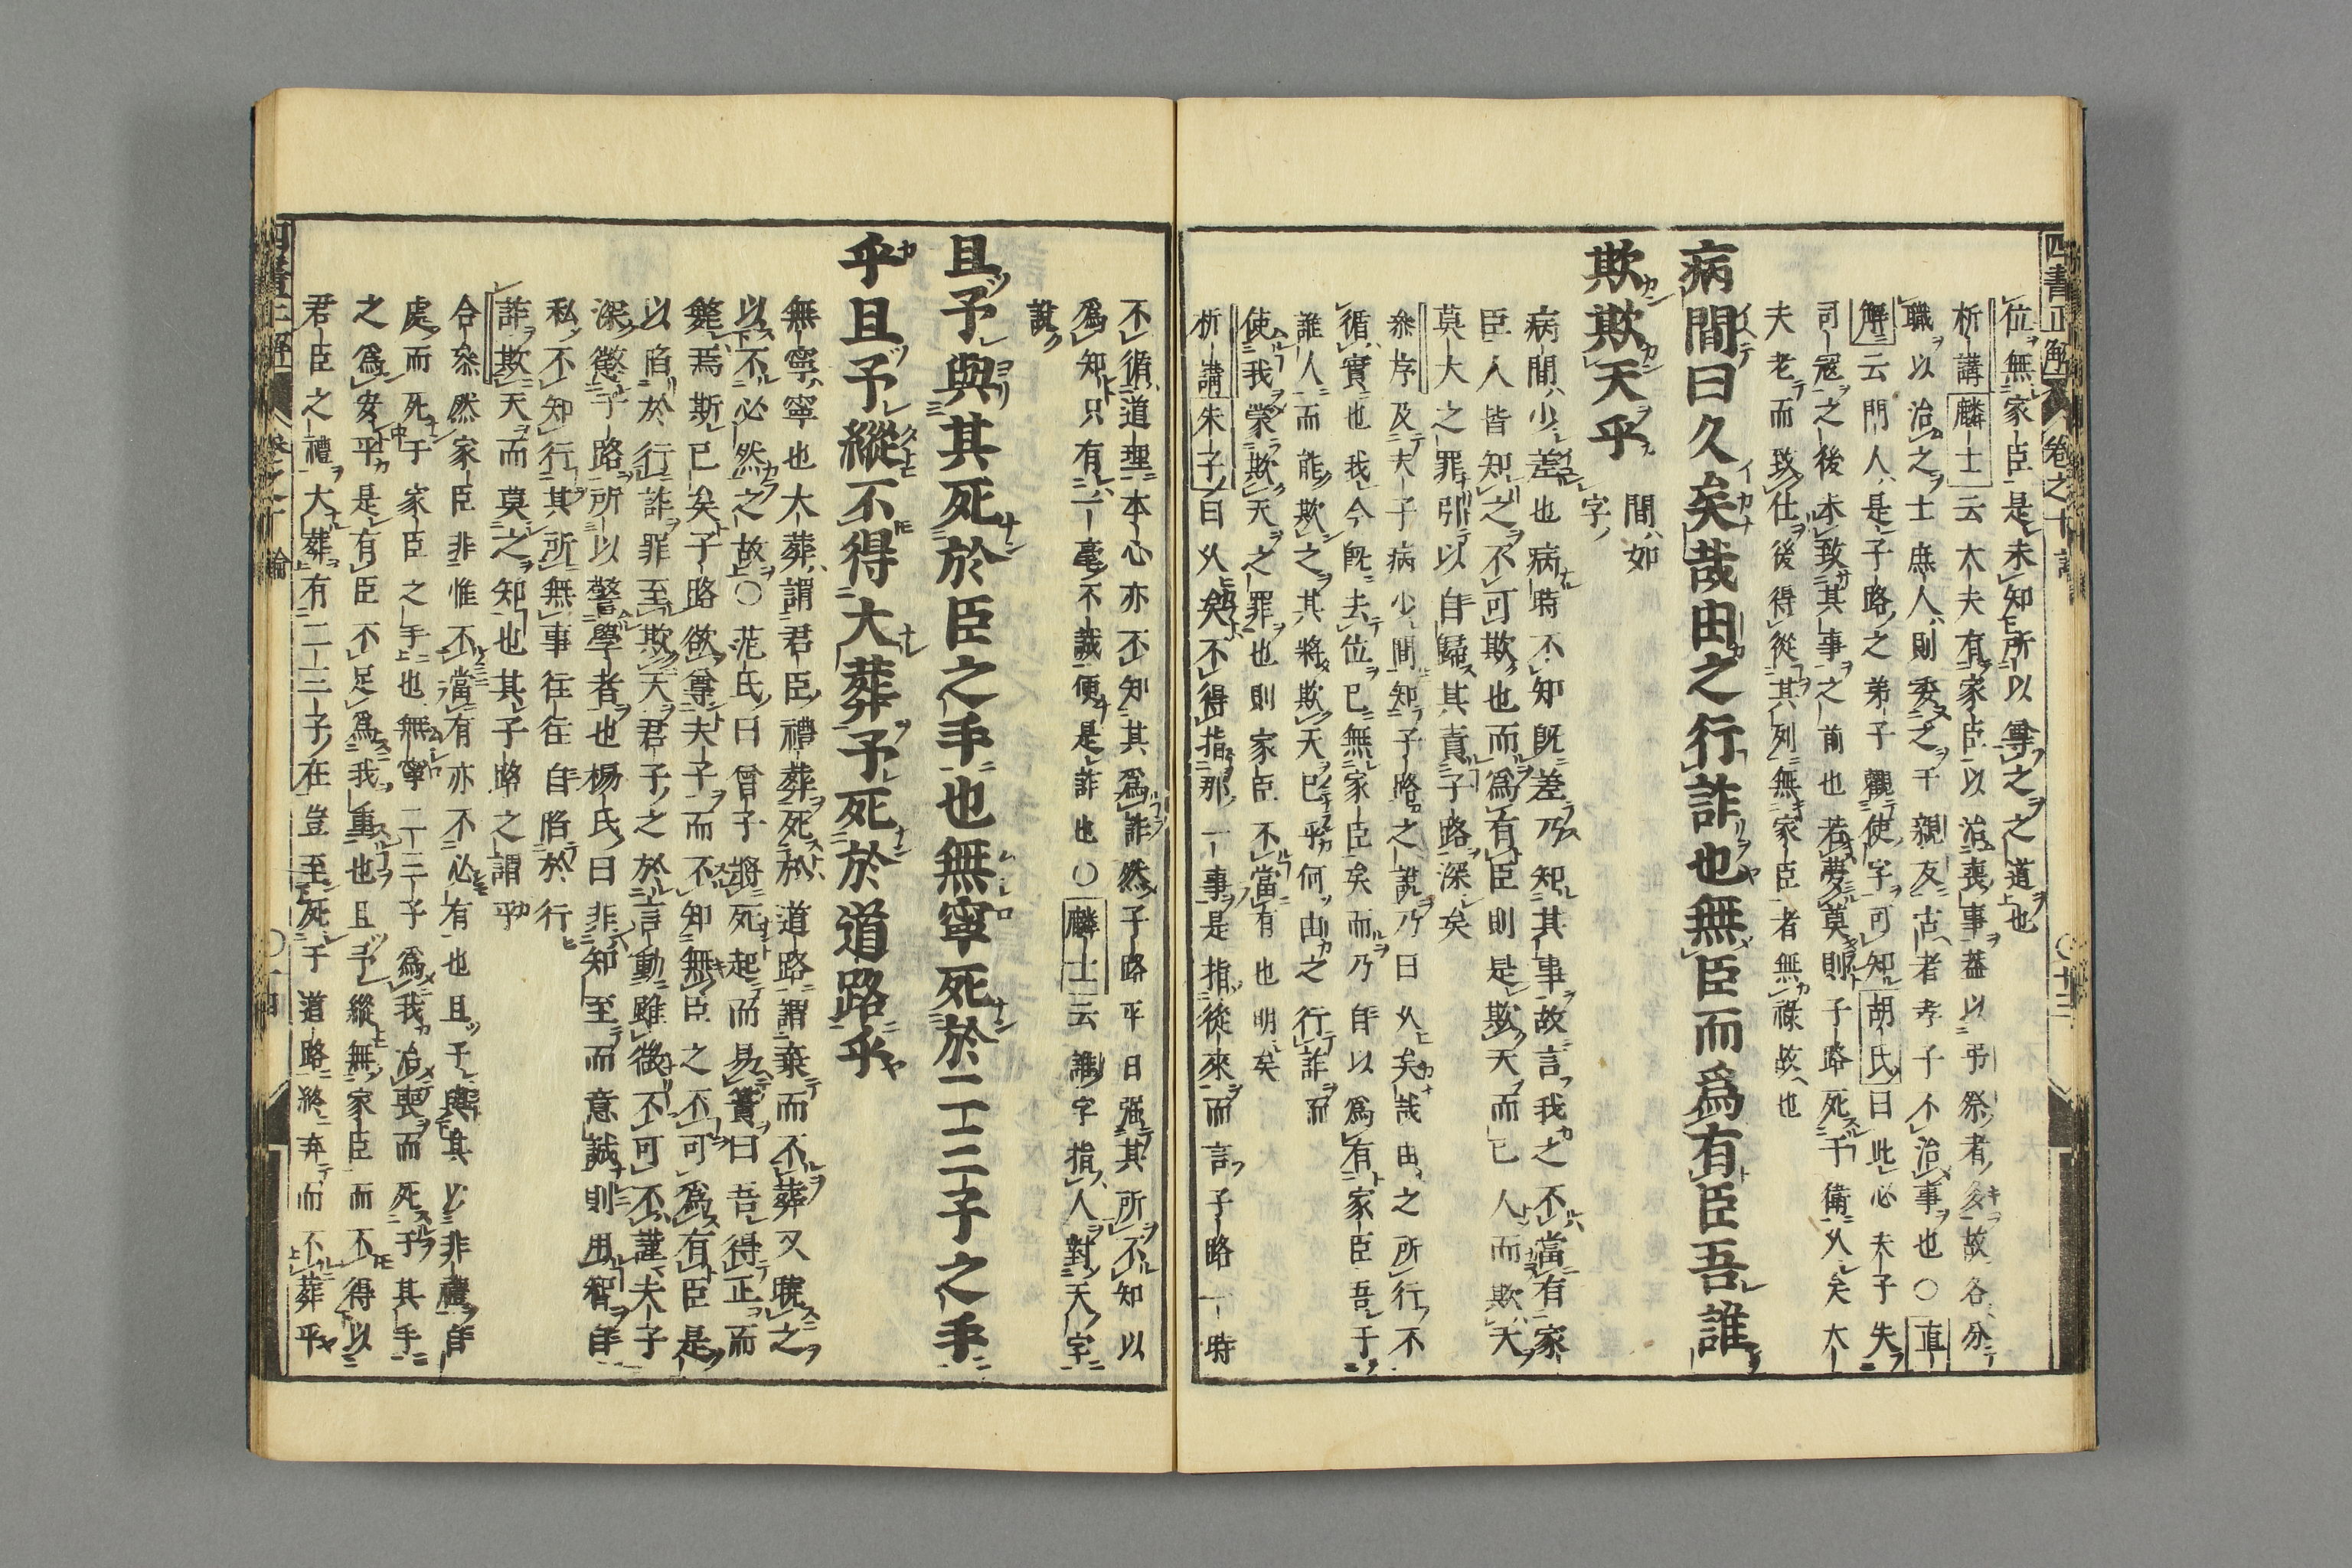 四書正解 卷之十論 〇十三
位無家臣是未知所以尊之之道也
析講麟士云大夫有家臣以治喪事蓋以弔祭者多故各分
職以治之士庶人則委之于親友古者孝子不治事也〇直
解云門人是子路之弟子觀使字可知胡氏曰此必夫子失
司寇之後未致其事之前也若夢奠則子路死于衛久矣大
夫老而致仕後得從其列無家臣者無祿故也
病間曰久矣哉由之行詐也無臣而爲有臣吾誰
欺欺天乎
間如
字
病間少差也病時不知既差乃知其事故言我之不當有家
臣人皆知之不可欺也而爲有臣則是欺天而已人而欺天
莫大之罪引以自歸其責子路深矣
叅序及夫子病少間知子路之說乃曰久矣哉由之所行不
循實也我今既去位已無家臣矣而乃自以爲有家臣吾于
誰人而能欺之其將欺天已乎何由之行詐而
使我蒙欺天之罪也則家臣不當有也明矣
析講朱子曰久矣不得指那一事是指從來而言子路一時
不循道理本心亦不知其爲詐然子路平日強其所不知以
爲知只有一毫不誠便是詐也〇麟士云誰字指人對天字
說
且予與其死於臣之手也無寧死於二三子之手
乎且予縱不得大葬予死於道路乎
無寧寧也大葬謂君臣禮葬死於道路謂棄而不葬又曉之
以不必然之故〇范氏曰曾子將死起而易簀曰吾得正而
斃焉斯已矣子路欲尊夫子而不知無臣之不可爲有臣是
以陷於行詐罪至欺天君子之於言動雖微不可不謹夫子
深懲子路所以警學者也楊氏曰非知至而意誠則用智自
私不知行其所無事往往自陷於行
詐欺天而莫之知也其子路之謂乎
合叅然家臣非惟不當有亦不必有也且予與其以非禮自
處而死于家臣之手也無寧二三子爲我治喪而死于其手
之爲安乎是有臣不足爲我重也且予縱無家臣而不得以
君臣之禮大葬有二三子在豈至死于道路終弃而不葬乎
四書正解 卷之十論 〇十四